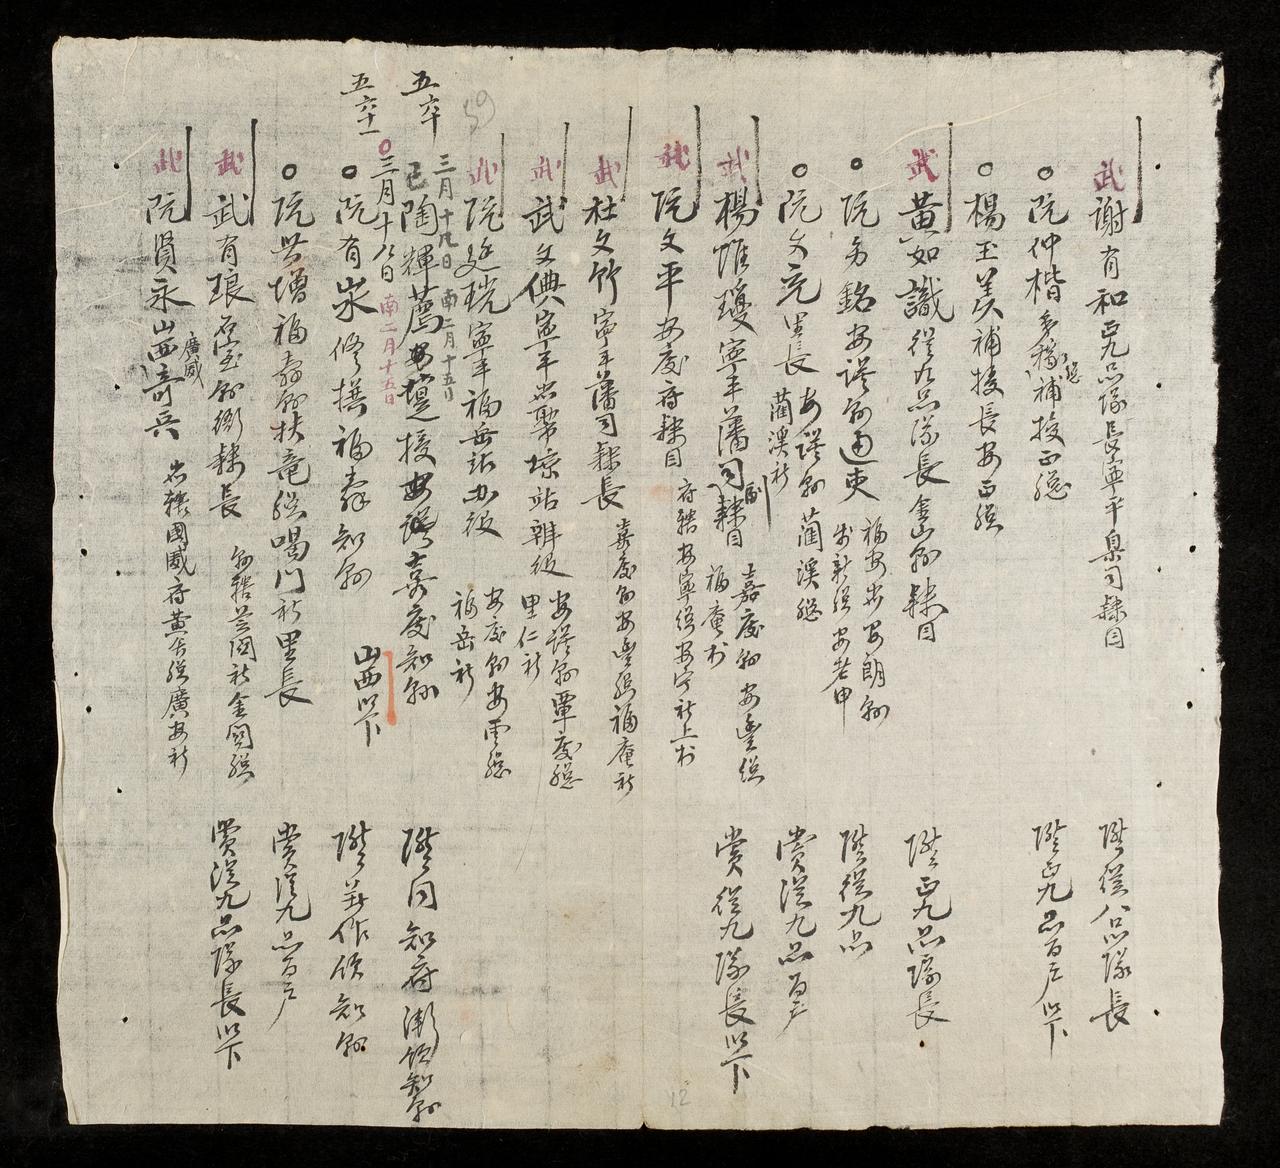 武 謝有和 正九品隊長寧平臬司隸目 陞從八品隊長
阮仲楷 補授正總 陞正九品百戶以下
楊玉美 補授長安正總
武 黃如識 從九品隊長金山縣隸目 陞正九品隊長
阮名銘 安謨縣通吏 陞從九品
阮文亮 里長 安謨縣蘭溪總
蘭溪社 賞從九品百戶
武 楊惟瓊 寧平藩司副隸目 嘉慶縣安豐總
福庵村 賞從九隊長以下
武 阮文平 安慶府隸目 府轄安寧總安寧社上村
武 杜文竹 寧平藩司隸長 嘉慶縣安豐總福庵社
武 武文典 寧平站辦役 安謨縣覃慶總
里仁社
武 阮廷琓 寧平福岳站办役 安慶縣安雲總
福岳社
三月十九日 南二月十五日
五六十
已 陶輝薦 授安謨嘉慶知縣 陞同知府銜領知縣
三月十八日 南二月十五日
五六十一
阮有 修撰福壽知縣 山西以下 陞著作領知縣
阮世增 福壽縣扶竜總喝門社里長 賞從九品百戶
武 武有琅 石室縣衙隸長 縣轄芝關社金關總 賞從九品隊長以下
武 阮賢永 山西奇兵 轄國威府黃舍總廣安社
廣威
59
12